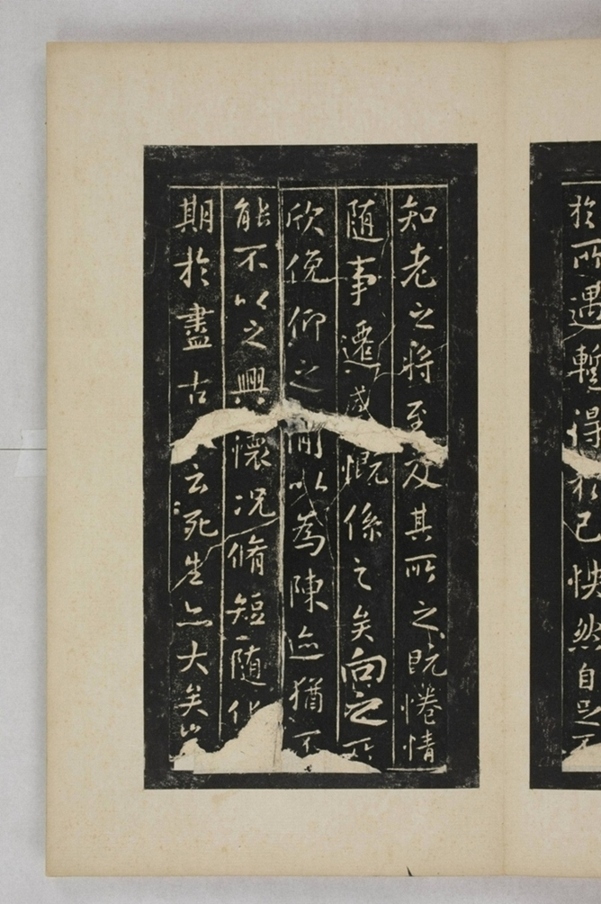 於所遇蹔得於己怏然自足不
知老之將至及其所之既惓情
隨事遷感慨係之矣向之所
欣俛仰之間以為陳迹猶不
能不以之興懷況脩短隨化
期於盡古云死生亦大矣